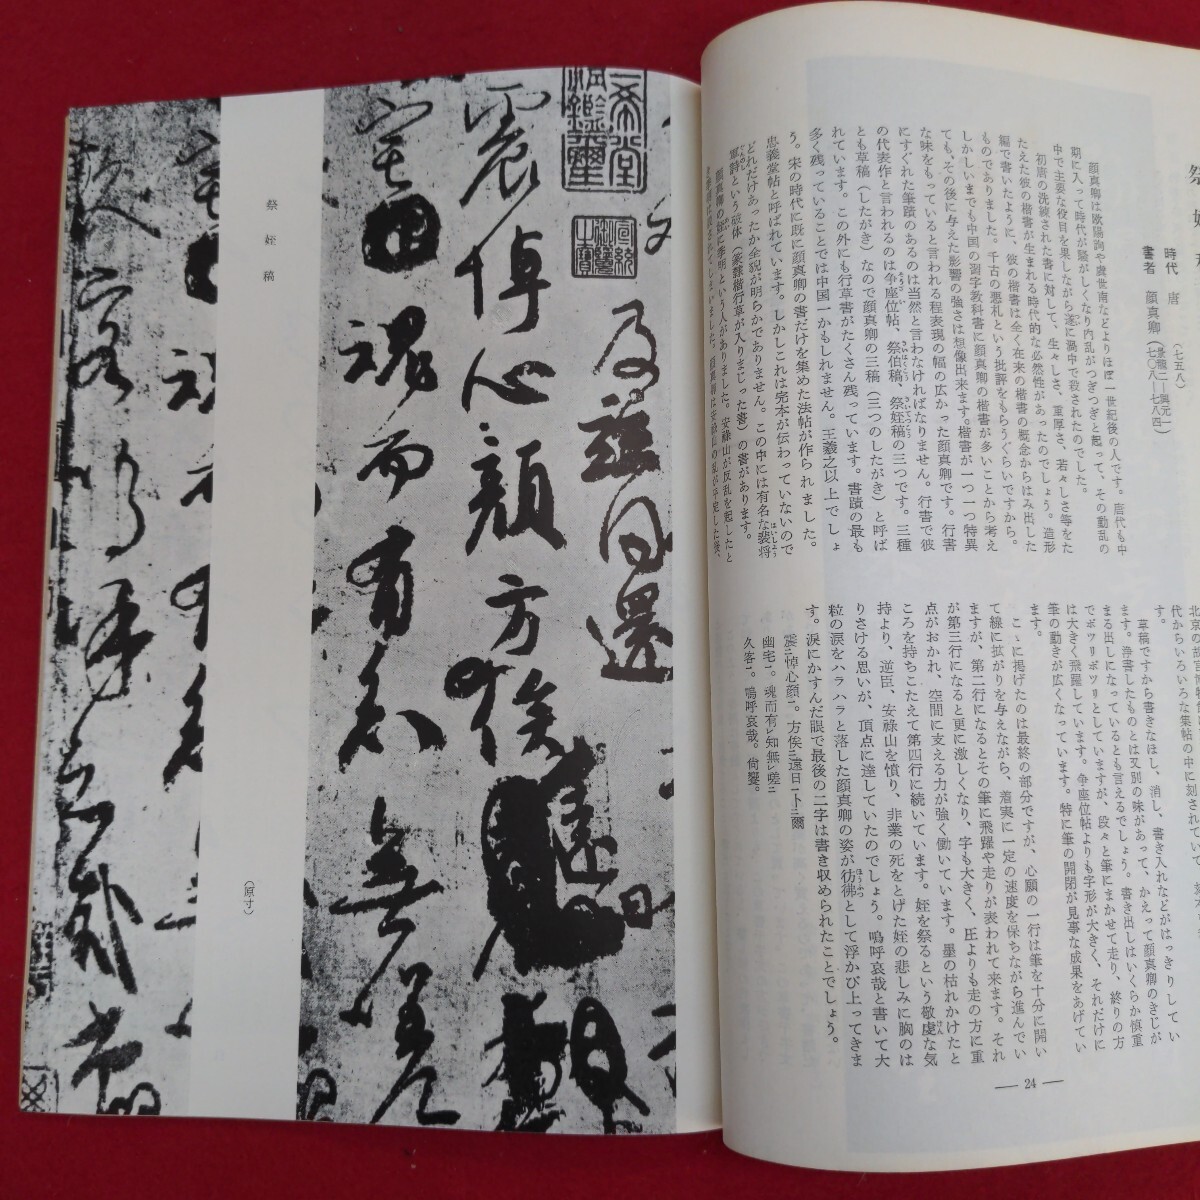 祭姪
時代　唐　（七五八）
書者　顔真卿（景龍二―興元一）
（七〇八―七八四）
顔真卿は欧陽詢や虞世南などよりほぼ一世紀後の人です。唐代も中
期に入って時代が騒がしくなり内乱がつぎつぎと起って、その動乱の
中で主要な役目を果しながら遂に渦中で殺されたのでした。
初唐の洗練された書に対して、生々しさ、重厚さ、若々しさ等をた
たえた彼の楷書が生まれる時代的な必然性があったのでしょう。造形
編で書いたように、彼の楷書は全く在来の楷書の概念からはみ出した
ものでありました。千古の悪札という批評をもらうくらいですから。
しかしいまでも中国の習字教科書に顔真卿の楷書が多いことから考え
ても、その後に与えた影響の強さは想像出来ます。楷書が一つ一つ特異
な味をもっていると言われる程表現の幅の広かった顔真卿です。行書
にすぐれた筆蹟のあるのは当然と言わなければなりません。行書で彼
の代表作と言われるのは争座位帖、祭伯稿、祭姪稿の三つです。三種
とも草稿（したがき）なので顔真卿の三稿（三つのしたがき）と呼ば
れています。この外にも行草書がたくさん残っています。書蹟の最も
多く残っていることでは中国一かもしれません。王羲之以上でしょ
う。宋の時代に既に顔真卿の書だけを集めた法帖が作られました。
忠義堂帖と呼ばれています。しかしこれは完本が伝わっていないので
どれだけあったか全貌が明らかでありません。この中には有名な裴将
軍詩という破体（篆隷楷行草が入りまじった書）の書があります。
顔真卿の姪に季明という人がありました。安祿山が反乱を起したと
北京の故宮博物
代からいろいろな集帖の中に刻されていて、
す。
草稿ですから書きなほし、消し、書き入れなどがはっきりしてい
ます。浄書したものとは又別の味があって、かえって顔真卿のきじが
まる出しになっているとも言えるでしょう。書き出しはいくらか慎重
でポツリポツリとしていますが、段々と筆にまかせて走り、終りの方
は大きく飛躍しています。争座位帖よりも字形が大きく、それだけに
筆の動きが広くなっています。特に筆の開閉が見事な成果をあげてい
ます。
こゝに掲げたのは最終の部分ですが、心願の一行は筆を十分に開い
て線に拡がりを与えながら、着実に一定の速度を保ちながら進んでい
ますが、第二行になるとその筆に飛躍や走りが表われて来ます。それ
が第三行になると更に激しくなり、字も大きく、圧よりも走の方に重
点がおかれ、空間に支える力が強く働いています。墨の枯れかけたと
ころを持ちこたえて第四行に続いています。姪を祭るという敬虔な気
持より、逆臣、安祿山を憤り、非業の死をとげた姪の悲しみに胸のは
りさける思いが、頂点に達していたのでしょう。嗚呼哀哉と書いて大
粒の涙をハラハラと落した顔真卿の姿が彷彿として浮かび上ってきま
す。涙にかすんだ眼で最後の二字は書き収められたことでしょう。
震ニ悼心顔一。方俟ニ遠日一卜ニ爾
幽宅一。魂而有レ知無レ嗟ニ
久客一。嗚呼哀哉。尚饗。
― 24 ―
及茲同還
震悼心顔方俟遠日
宅魂而有知無嗟
祭姪稿
（原寸）
久客嗚呼哀哉尚